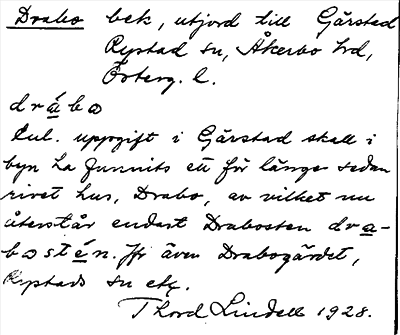 Drabo bek, utjord till Gärstad
Rystad sn, Åkerbo hd,
Österg. l.
drábo
Enl. uppgift i Gärstad skall i
byn ha funnits ett för länge sedan
rivet hus, Drabo, av vilket nu
återstår endast Drabosten dra-
bostén. Jfr även Drabogärdet,
Rystads sn etc.
Thord Lindell 1928.